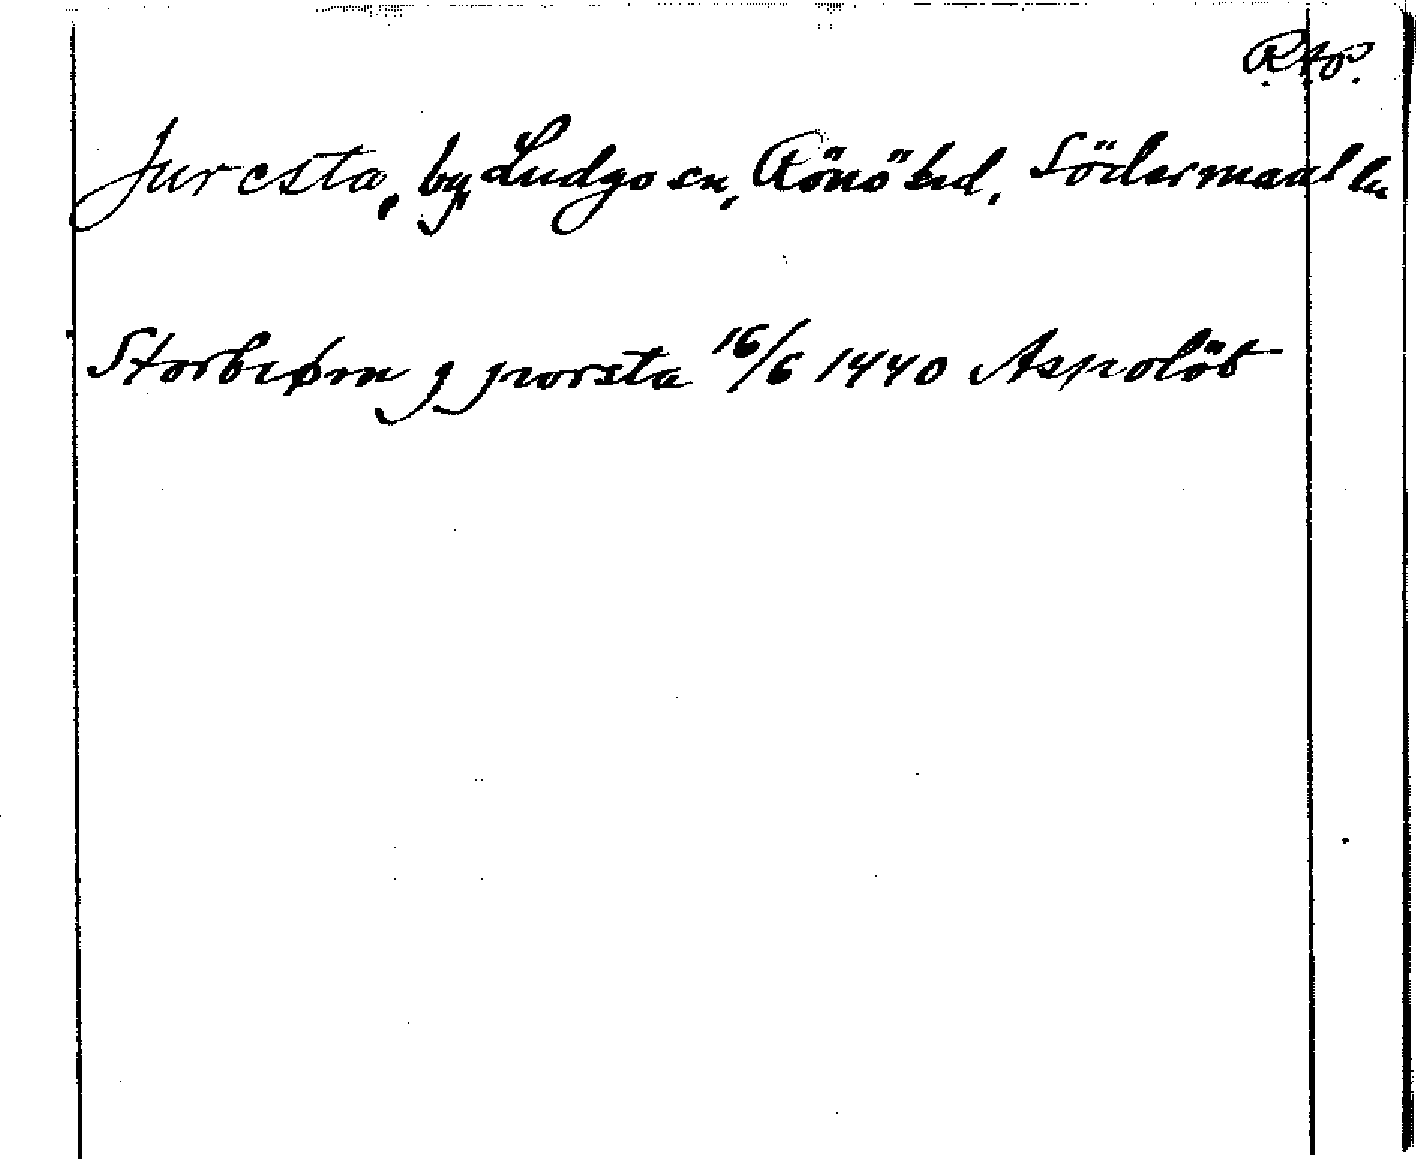 R.A.P.
Juresta, by, Ludgo sn, Rönö hd, Södermanl ln
Storbiørn j jworsta 16/6 1440 Aspolöt